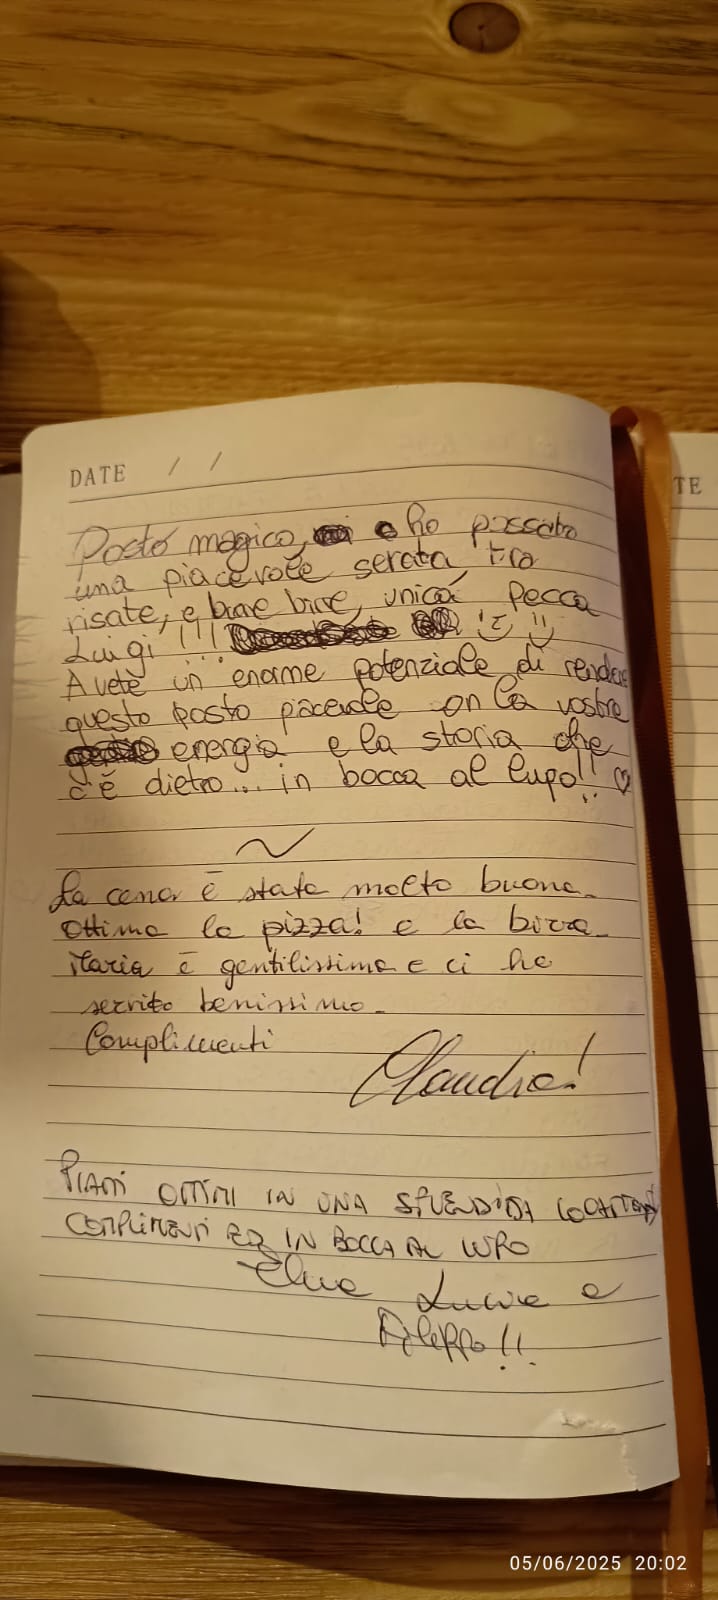 DATE / /
TE
Posto magico, e ho passato
una piacevole serata tra
risate, e birre, unica pecca
Luigi!!!
Avete un enorme potenziale di rendere
questo posto piacevole con la vostra
energia e la storia che
c'è dietro... in bocca al lupo!! ♡
La cena è stata molto buona.
Ottima la pizza! e la birra.
Ilaria è gentilissima e ci ha
servito benissimo.
Complimenti
Claudia!
PIATTI OTTIMI IN UNA SPLENDIDA
COMPLIMENTI ED IN BOCCA AL LUPO
Lucia e
!!
05/06/2025 20:02